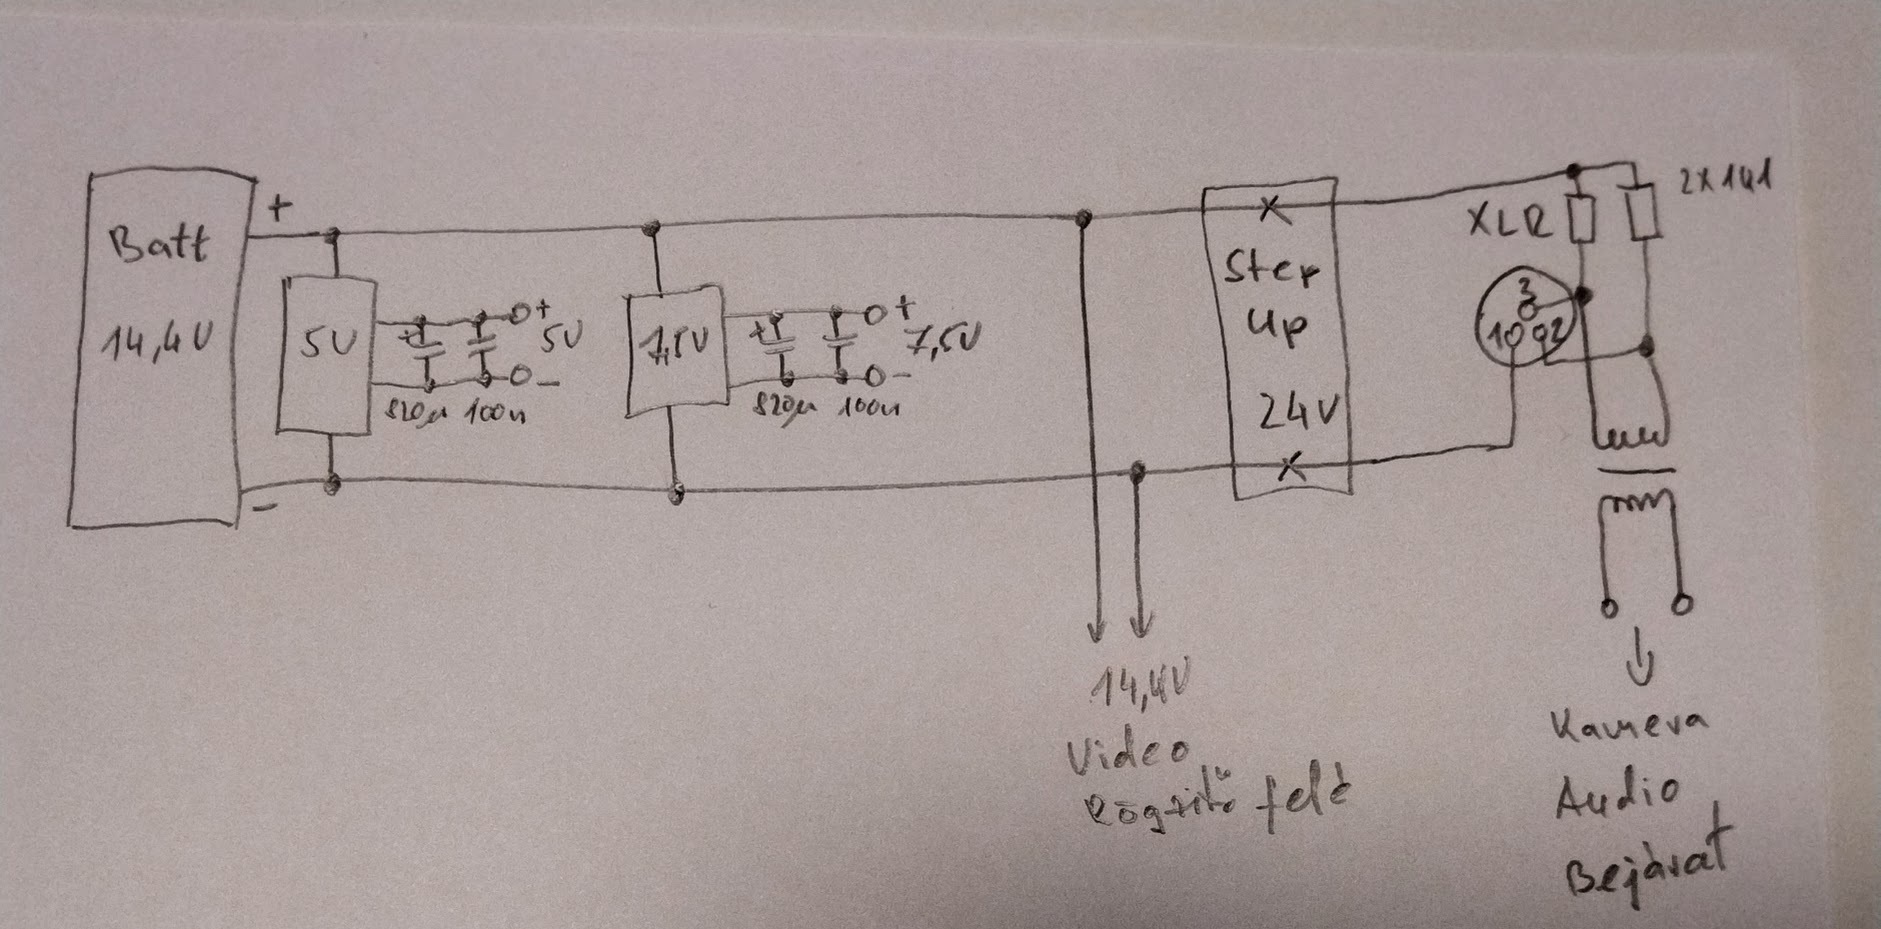 Batt
14,4V
+
-
5V
+
+
5V
-
820µ 100n
7,5V
+
+
7,5V
-
820µ 100n
X
Step
up
24V
X
2X1k1
XLR
3
1 2
14,4V
Video
Rögzítő felé
Kamera
Audio
Bejárat